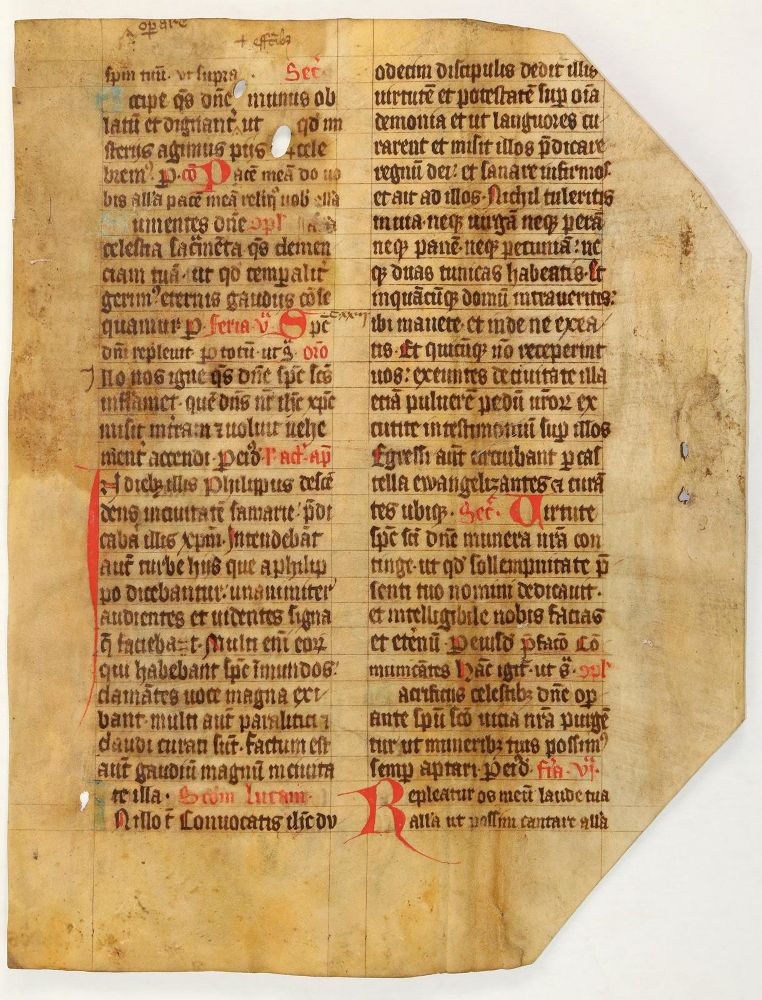 operare
+ effectibus
spm tuū · ut supra · Secͬ
ccipe qs dn̄e munus ob
latū et dignant̉ ut qd mi
sterijs agimus pijs cele
brem⁹ · P · cō Pacē meā do uo
bis alla pacē meā relīq uob alla
umentes dn̄e
celestia sac̄mēta qs clemen
ciam tuā · ut qd temporalit̉
gerim⁹ eternis gaudijs cōse
quamur P · feria · v ᵃ Spc̄
dn̄i repleuit P totū · ut sᵃ · orō
Ilo nos igne qs dn̄e spc̄ scs̄
inflamet · quē dn̄s nr̄ ihc̄ xpc̄
misit in trām ⁊ uoluit uehe
ment̉ accendi · P eiᵈ · l' act̉ · ap̄
N dieb₃ illis Philippus descē
dens in ciuitatē samarie · p̄di
cabā illis xpm̄ · Intendebāt
aut̄ turbe hijs que a philip
po dicebantur · unanimiter
audientes et uidentes signa
q̄ faciebant · Multi eni eoꝝ
qui habebant spc̄ īmundos ·
clamātes uoce magna exi
bant · multi aut̄ paralitici ⁊
claudi curati sūt · factum est
aut̄ gaudiū magnū in ciuita
te illa · Scdm lucam ·
N illo t̄ Conuocatis ihc̄ du
odecim discipulis dedit illis
uirtutē et potestatē sup oīa
demonia et ut languores cu
rarent et misit illos p̄dicare
regnū dei · et sanare infirmos
et ait ad illos · Nichil tuleritis
in uia · neqꝫ uirgā neqꝫ perā
neqꝫ panē · neqꝫ pecuniā : ne
qꝫ duas tunicas habeatis · Et
in quācūqꝫ domū intraueritis :
ibi manete · et inde ne exea
tis · Et quicūqꝫ nō receperint
uos : exeuntes de ciuitate illa
eciā puluerē pedū ur̄oꝝ ex
cutite in testimoniū sup illos
Egressi aūt circuibant p cas
tella ewangelizantes ⁊ curā
tes ubiqꝫ · Secͬ · Uirtute
spc̄ sc̄i dn̄e munera nr̄a con
tinge · ut qd sollempnitate p̄
senti tuo nomini dedicauit ·
et intelligibile nobis facias
et et̄enū · P eiusᵈ p̄faco Cō
municātes Hāc igit̉ · ut sᵃ ·
acrificijs celestib₃ dn̄e op̄
ante spū scō uicia nr̄a purgē
tur ut munerib₃ tuis possim⁹
semp aptari · P eiᵈ · fīa · vj ·
Repleatur os meū laude tua
alla ut possim cantare alla